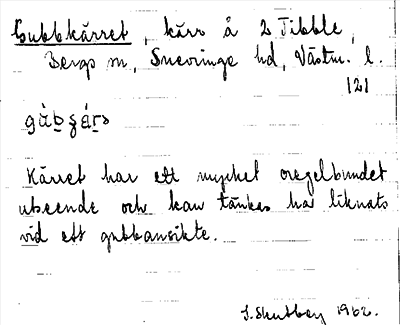 Gubbkärret, kärr å 2 Tibble,
Bergs sn, Snevringe hd, Västm. l.
121
gùb̲ʂá̲rs
Kärret har ett mycket oregelbundet
utseende och kan tänkas ha liknats
vid ett gubbansikte.
1962.